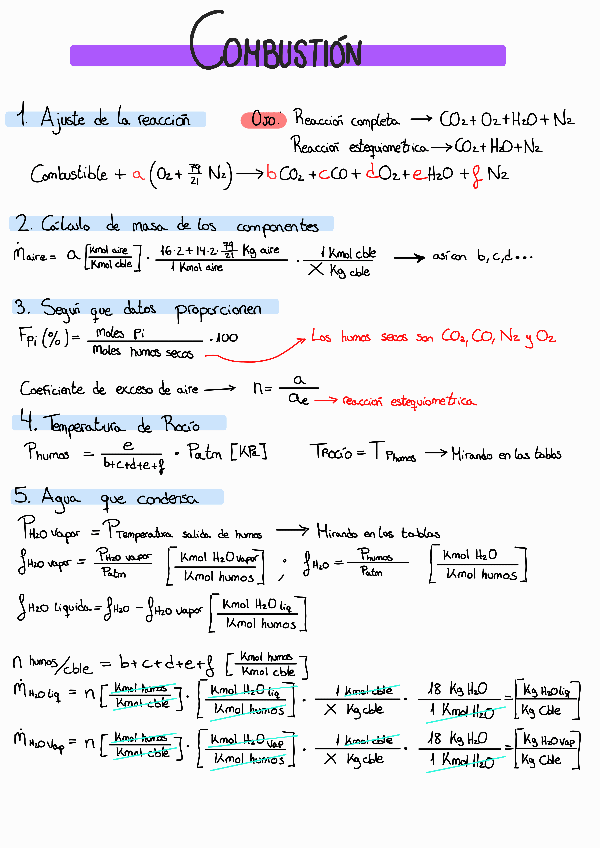 COMBUSTIÓN
1. Ajuste de la reacción
Ojo: Reacción completa → CO2 + O2 + H2O + N2
Reacción estequiométrica → CO2 + H2O + N2
Combustible + a (O2 + 79/21 N2) → bCO2 + cCO + dO2 + eH2O + f N2
2. Cálculo de masa de los componentes
ṁaire = a [Kmol aire / Kmol cble] · (16·2 + 14·2·79/21 Kg aire / 1 Kmol aire) · (1 Kmol cble / X Kg cble) → así con b, c, d...
3. Según que datos proporcionen
FPi (%) = (moles Pi / moles humos secos) · 100 → Los humos secos son CO2, CO, N2 y O2
Coeficiente de exceso de aire → n = a / ae → reacción estequiométrica
4. Temperatura de Rocío
Phumos = e / (b+c+d+e+f) · Patm [KPa] TROCÍO = T Phumos → Mirando en las tablas
5. Agua que condensa
PH2O vapor = PTemperatura salida de humos → Mirando en las tablas
fH2O vapor = PH2O vapor / Patm [Kmol H2O vapor / Kmol humos] ; fH2O = Phumos / Patm [Kmol H2O / Kmol humos]
fH2O liquida = fH2O - fH2O vapor [Kmol H2O liq / Kmol humos]
n humos/cble = b+c+d+e+f [Kmol humos / Kmol cble]
ṁH2O liq = n [Kmol humos / Kmol cble] · [Kmol H2O liq / Kmol humos] · (1 Kmol cble / X Kg cble) · (18 Kg H2O / 1 Kmol H2O) = [Kg H2O liq / Kg Cble]
ṁH2O vap = n [Kmol humos / Kmol cble] · [Kmol H2O vap / Kmol humos] · (1 Kmol cble / X Kg cble) · (18 Kg H2O / 1 Kmol H2O) = [Kg H2O vap / Kg Cble]